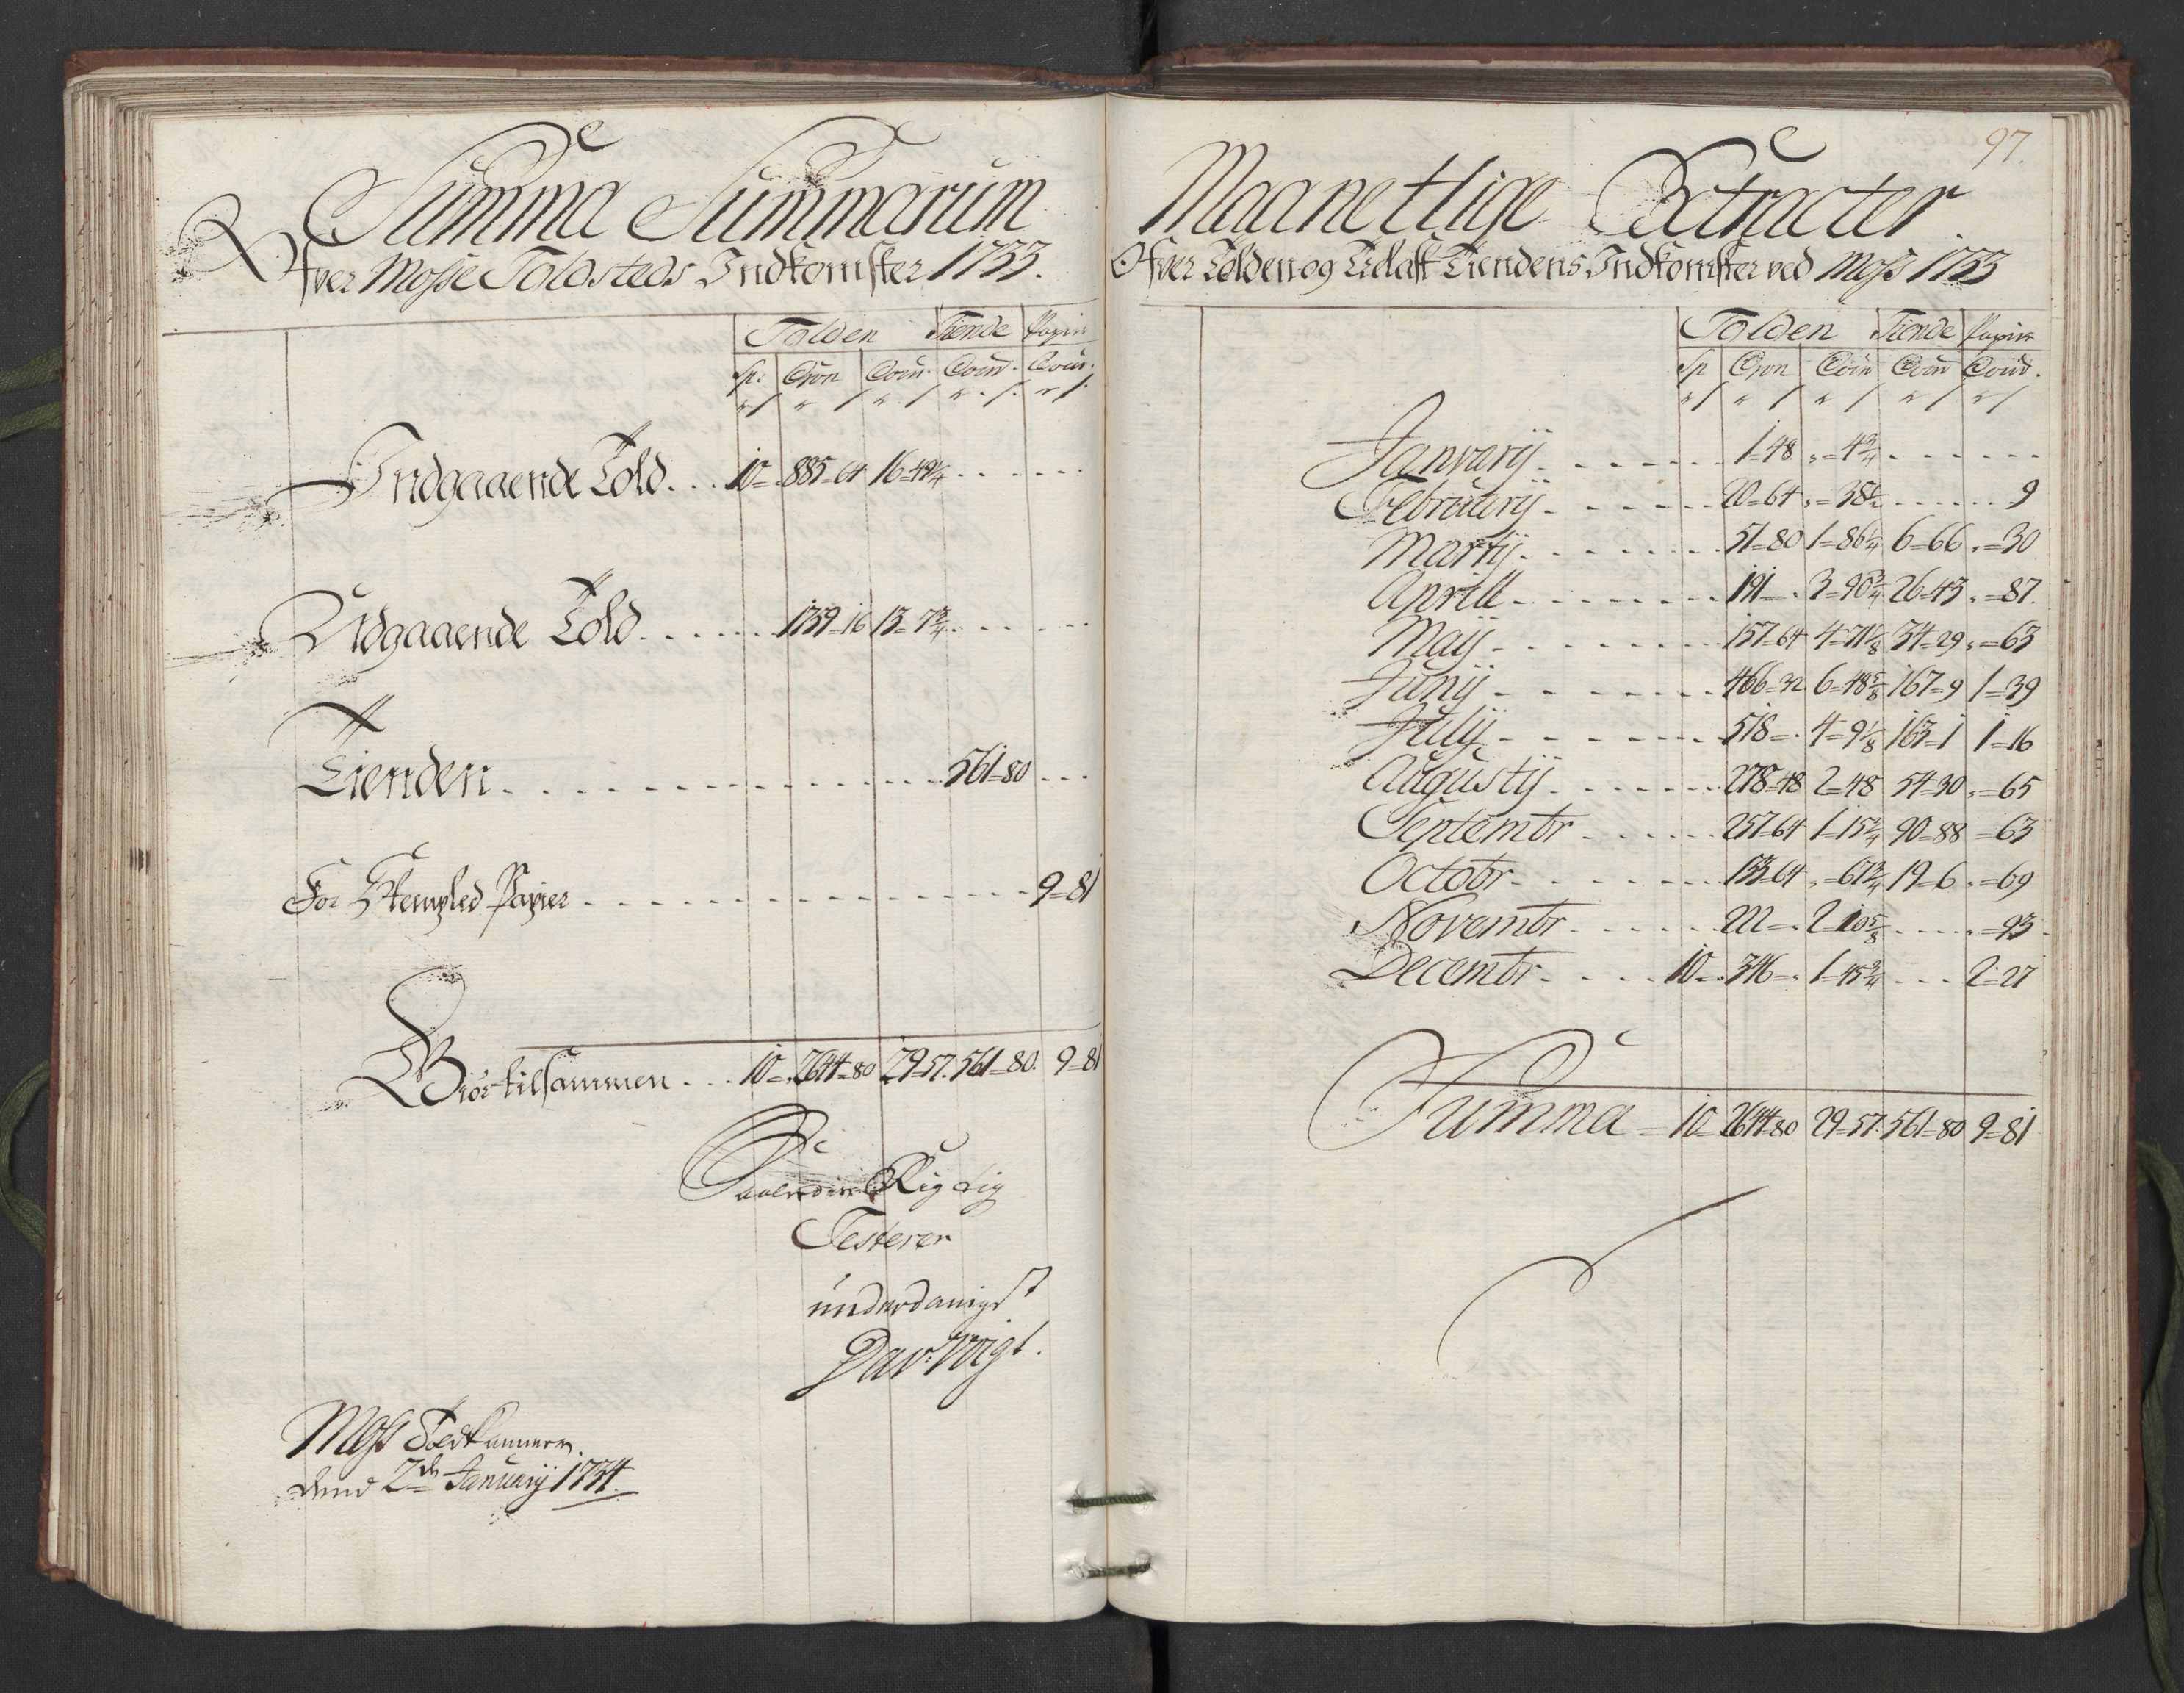 Summa Summarum
Ofver Mosse Toldsteds Indkomster 1733.
Tolden Tiende Papiir
Sp: Cron Cour. Cour. Cour.
Indgaaende Told. . . 10 = . 885 = 64 16 = 49 1/4 . . . . . .
Udgaaende Told . . . . . . 1759 = 16 13 = 7 3/4 . . . . . .
Tienden . . . . . . . . . . . . 561 = 80 . . .
For Stempled Papier . . . . . . . . . . . . 9 = 81
Giør tilsammen . . . 10 = . 2644 = 80 29 = 57. 561 = 80. 9 = 81
Rigtig
Testerer
underdanigst
Dav: Voigt.
Moss Toldkammer.
dend 2de January 1734.
97.
Maanetlige Extracter
Ofver Tolden og Tiendens Indkomster ved Moss 1733
Tolden Tiende Papiir
Sp Cron Cour Cour Cour.
Januarij . . . . . . 1 = 48 „ = 4 3/4 . . . . . .
Februarij . . . . . . 20 = 64 „ = 38 1/2 . . . . . . 9
Martij . . . . . . 51 = 80 1 = 86 1/4 6 = 66 „ = 30
Aprill . . . . . . 191 = . 3 = 90 3/4 26 = 43 „ = 87.
Maij . . . . . . 157 = 64 4 = 71 1/8 34 = 29 „ = 63
Junij . . . . . . 466 = 32 6 = 48 5/8 167 = 9 1 = 39
Julij . . . . . . 518 = . 4 = 9 1/8 163 = 1 1 = 16
Augustij . . . . . . 278 = 48 2 = 48 54 = 30 „ = 65
Septembr . . . . . . 257 = 64 1 = 15 3/4 90 = 88 = 63
Octobr . . . . . . 133 = 64 „ = 67 3/4 19 = 6 „ = 69
Novembr . . . . . . 222 = . 2 = 10 5/8 . . . . „ = 93
Decembr . . . . 10 = . 346 = . 1 = 45 3/4 . . . 2 = 27
Summa = 10 = 2644 = 80 29 = 57. 561 = 80 9 = 81